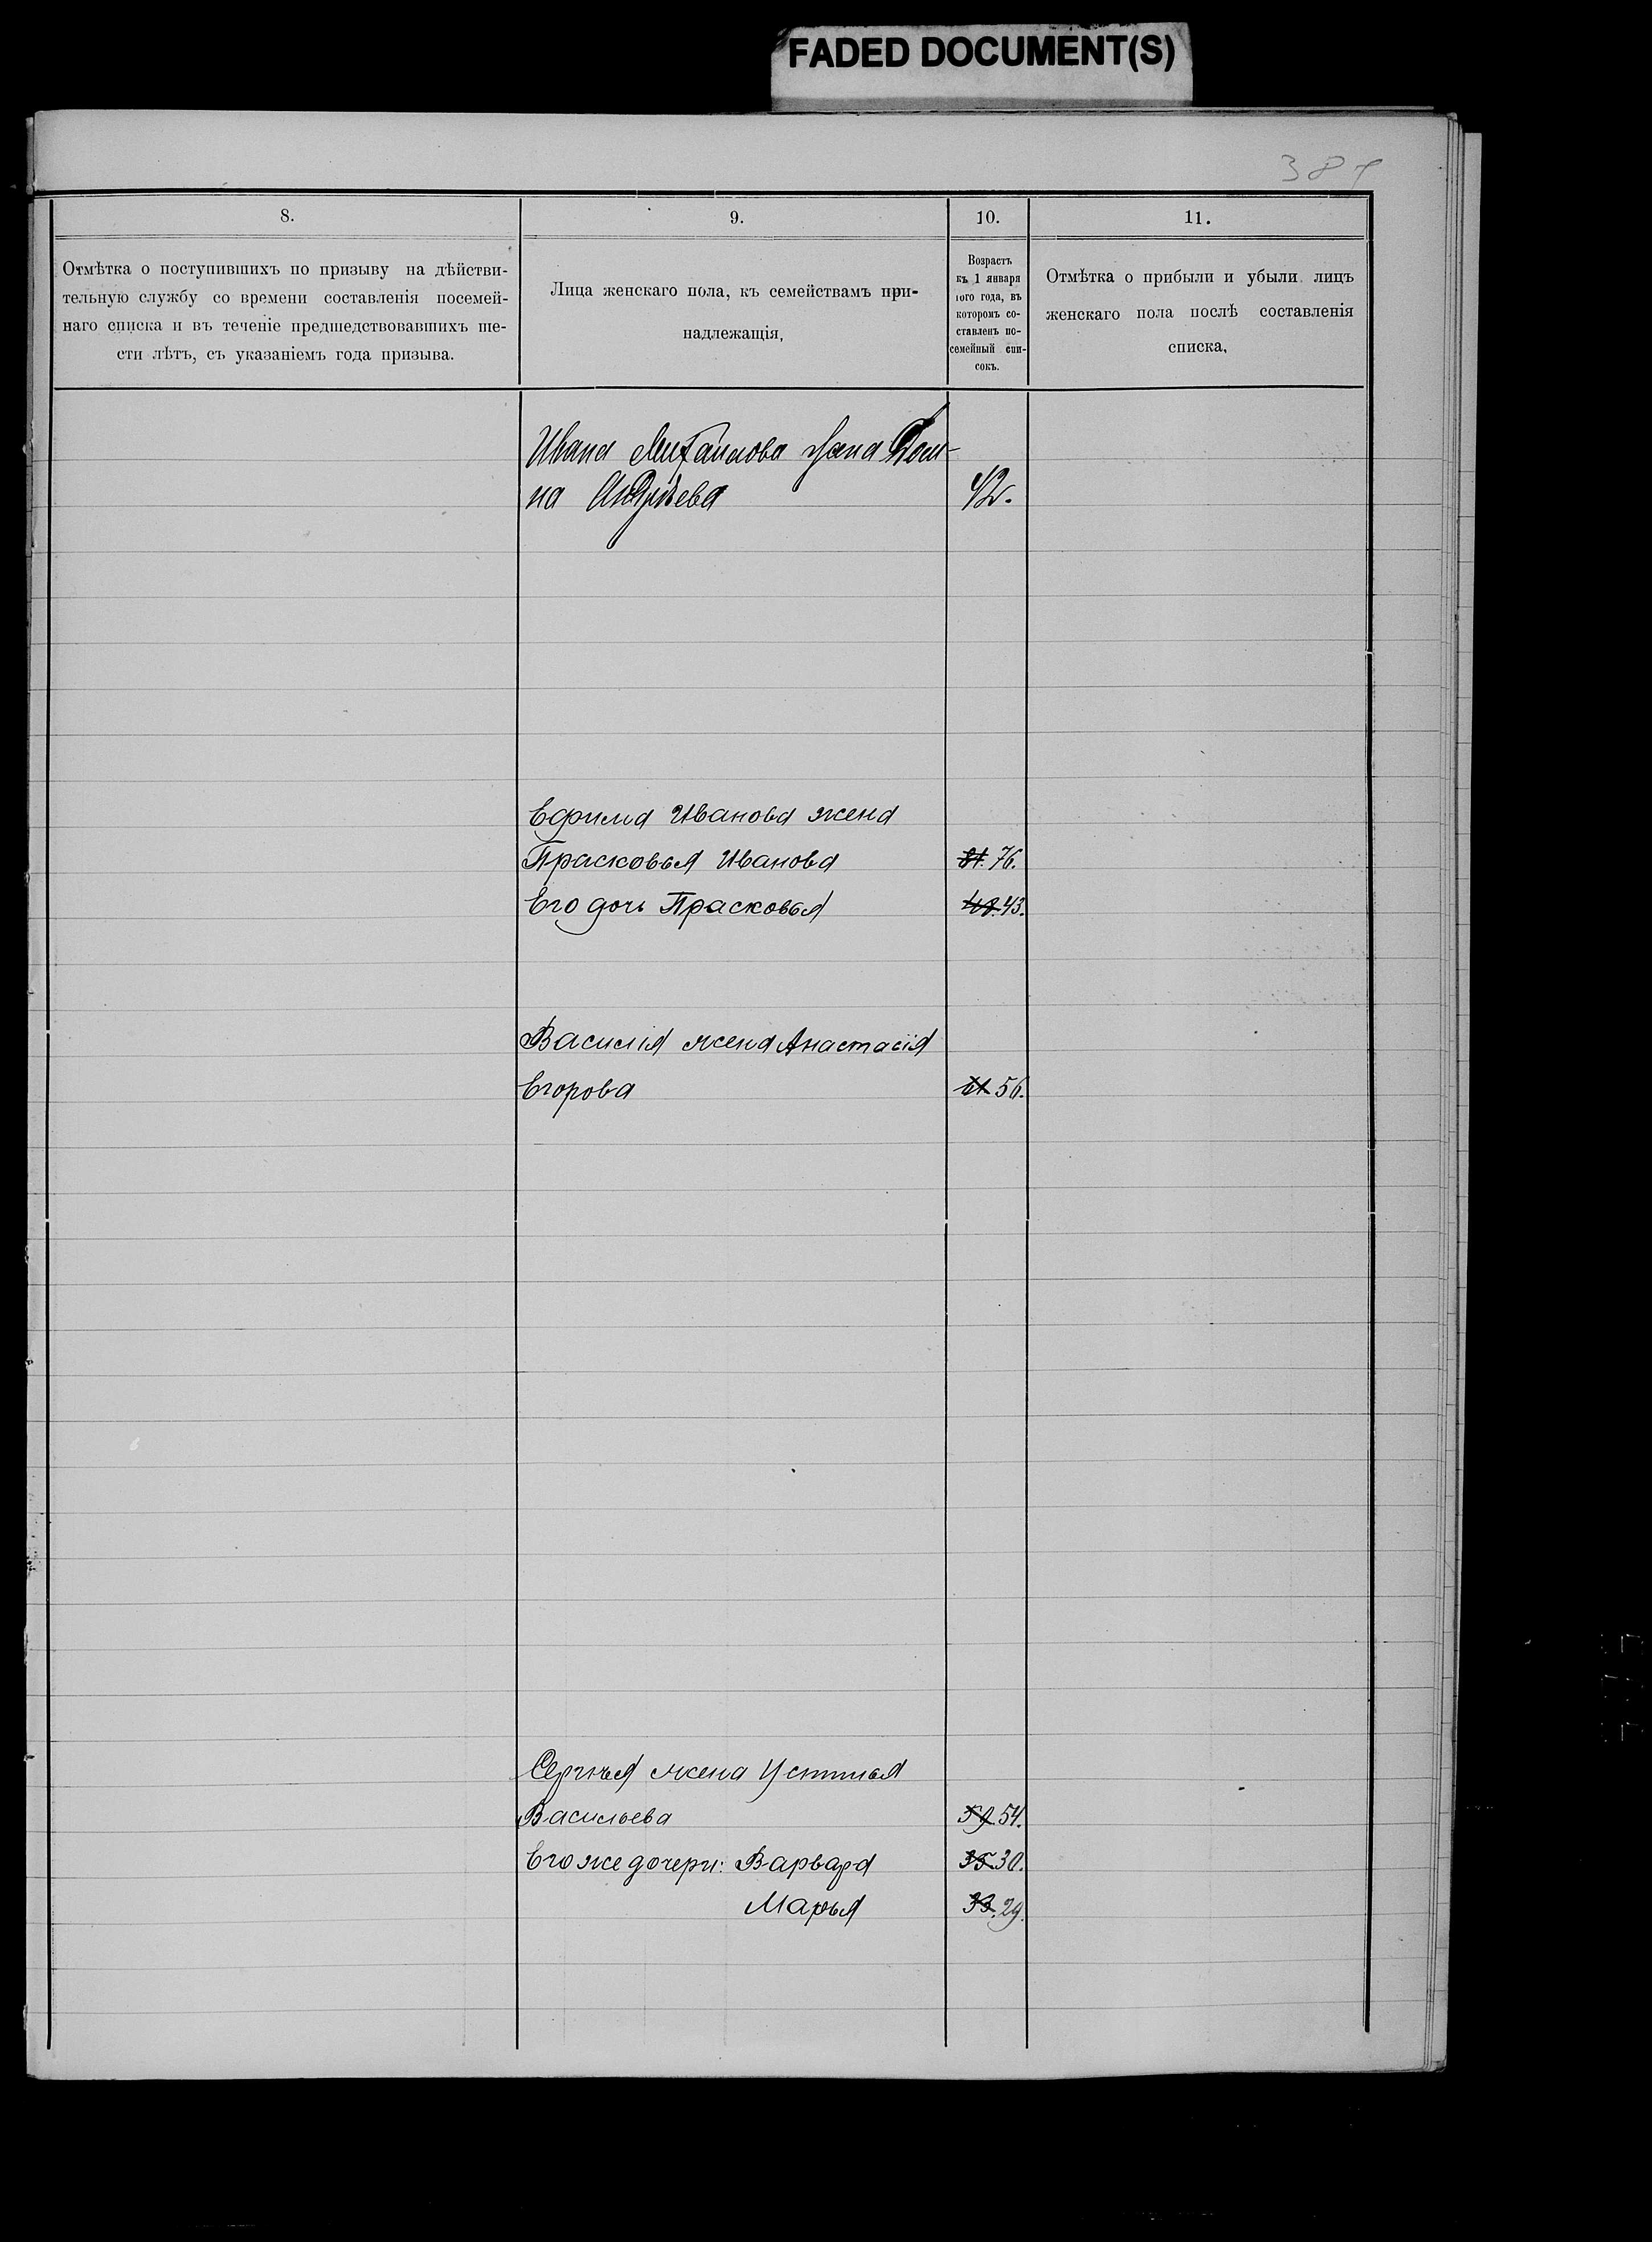 FADED DOCUMENT(S)
8.
9.
10.
11.
Отмѣтка о поступившихъ по призыву на дѣйстви-
тельную службу со времени составленія посемей-
наго списка и въ теченіе предшедствовавшихъ ше-
сти лѣтъ, съ указаніемъ года призыва.
Лица женскаго пола, къ семействамъ при-
надлежащія,
Возрастъ
къ 1 января
того года, въ
которомъ со-
ставленъ по-
семейный спи-
сокъ.
Отмѣтка о прибыли и убыли лицъ
женскаго пола послѣ составленія
списка,
Ивана Михаилова жена Дом-
на Андрѣева 42.
Ефима Иванова жена
Прасковья Иванова 81. 76.
Его дочь Прасковья 48. 43.
Василія жена Анастасія
Егорова 61 56.
Сергѣя жена Устинья
Васильева 59. 54.
Его же дочери: Варвара 35 30.
Марья 33. 29.